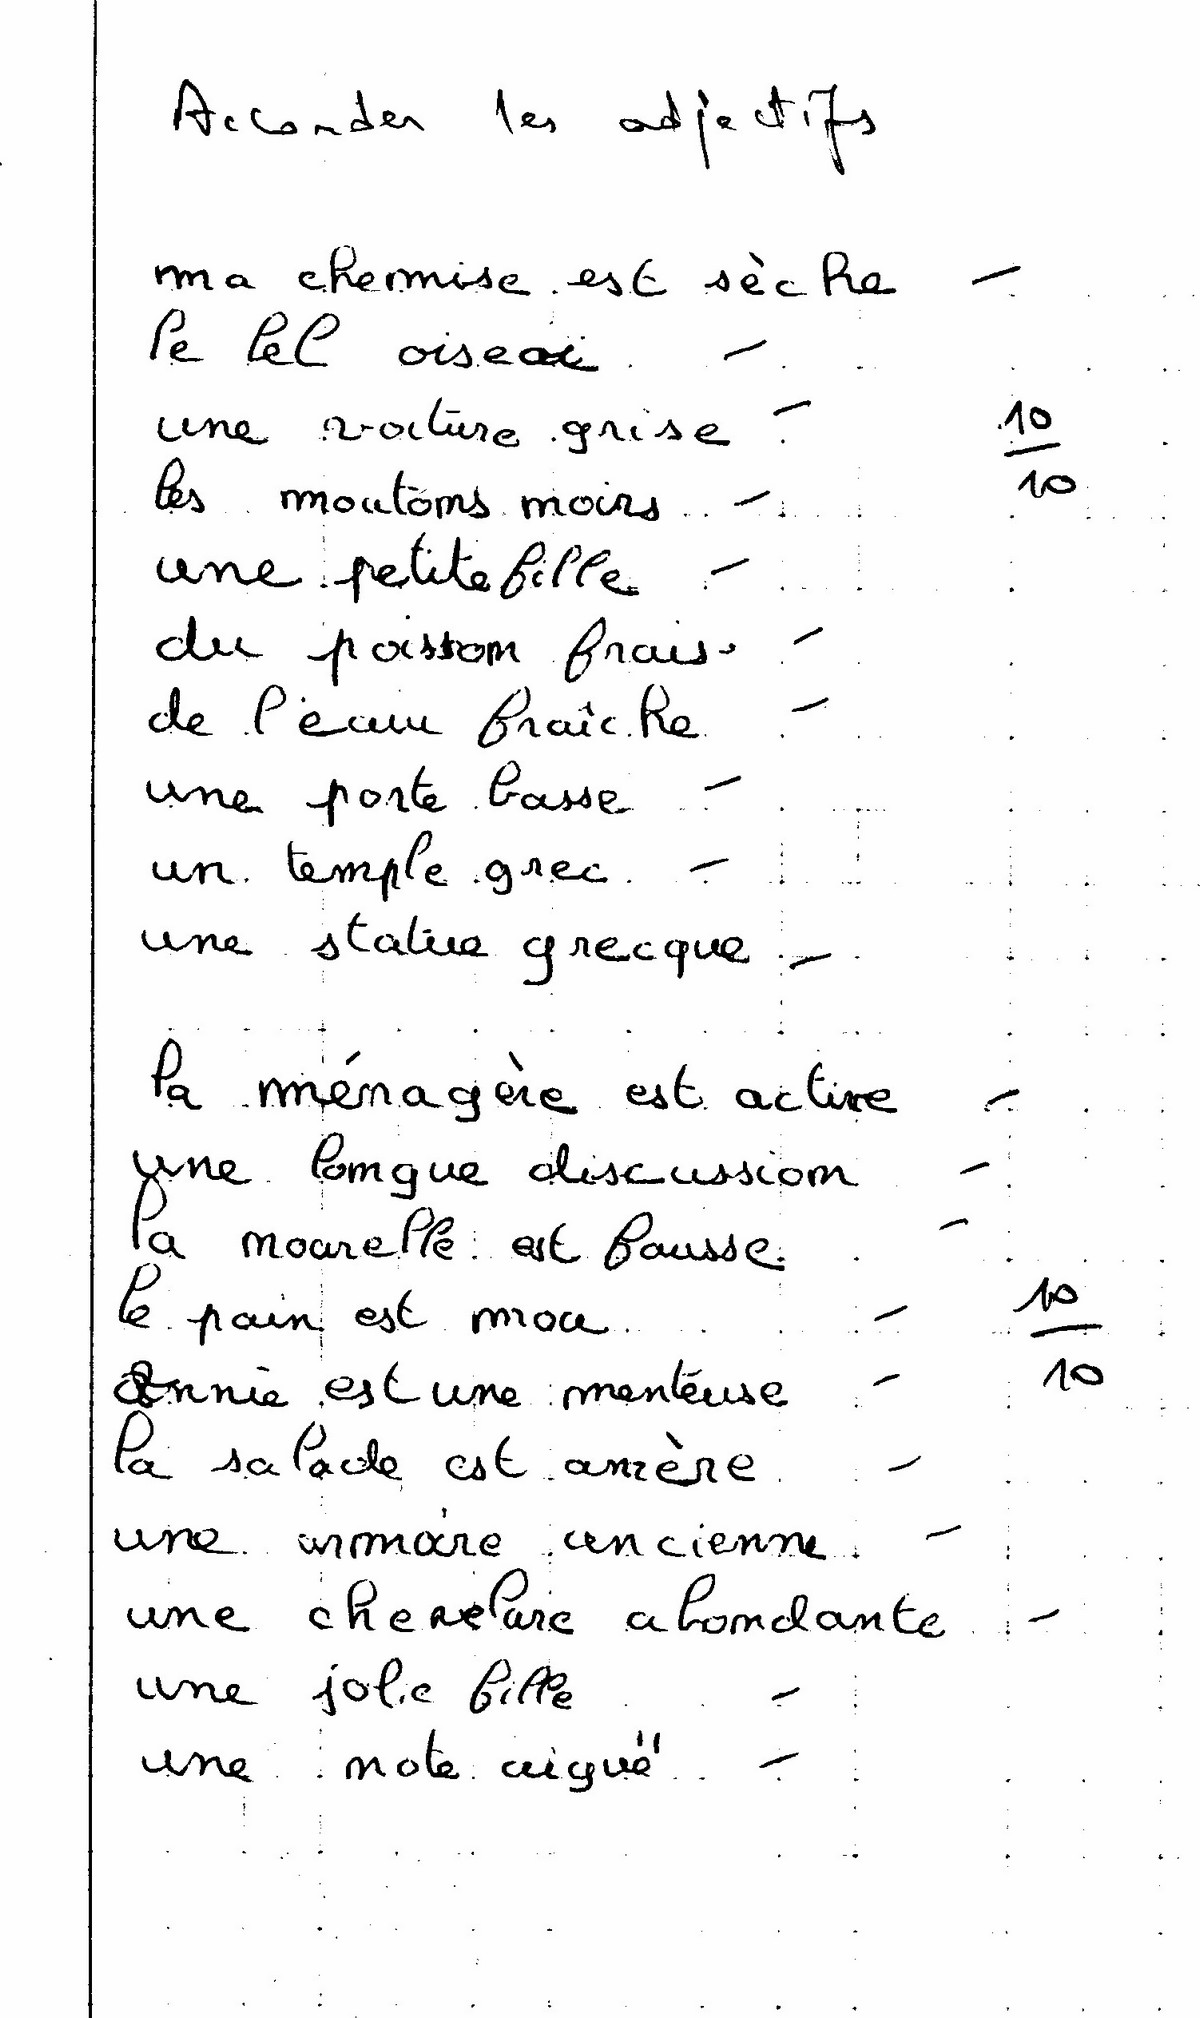 Accorder les adjectifs
ma chemise est sèche –
le bel oiseau –
une voiture grise –
10
les moutons noirs –
10
une petite fille –
du poisson frais –
de l'eau fraîche –
une porte basse –
un temple grec –
une statue grecque –
la ménagère est active –
une longue discussion –
la nouvelle est fausse –
le pain est mou –
10
Annie est une menteuse –
10
la salade est amère –
une armoire ancienne –
une chevelure abondante –
une jolie fille –
une note aiguë –